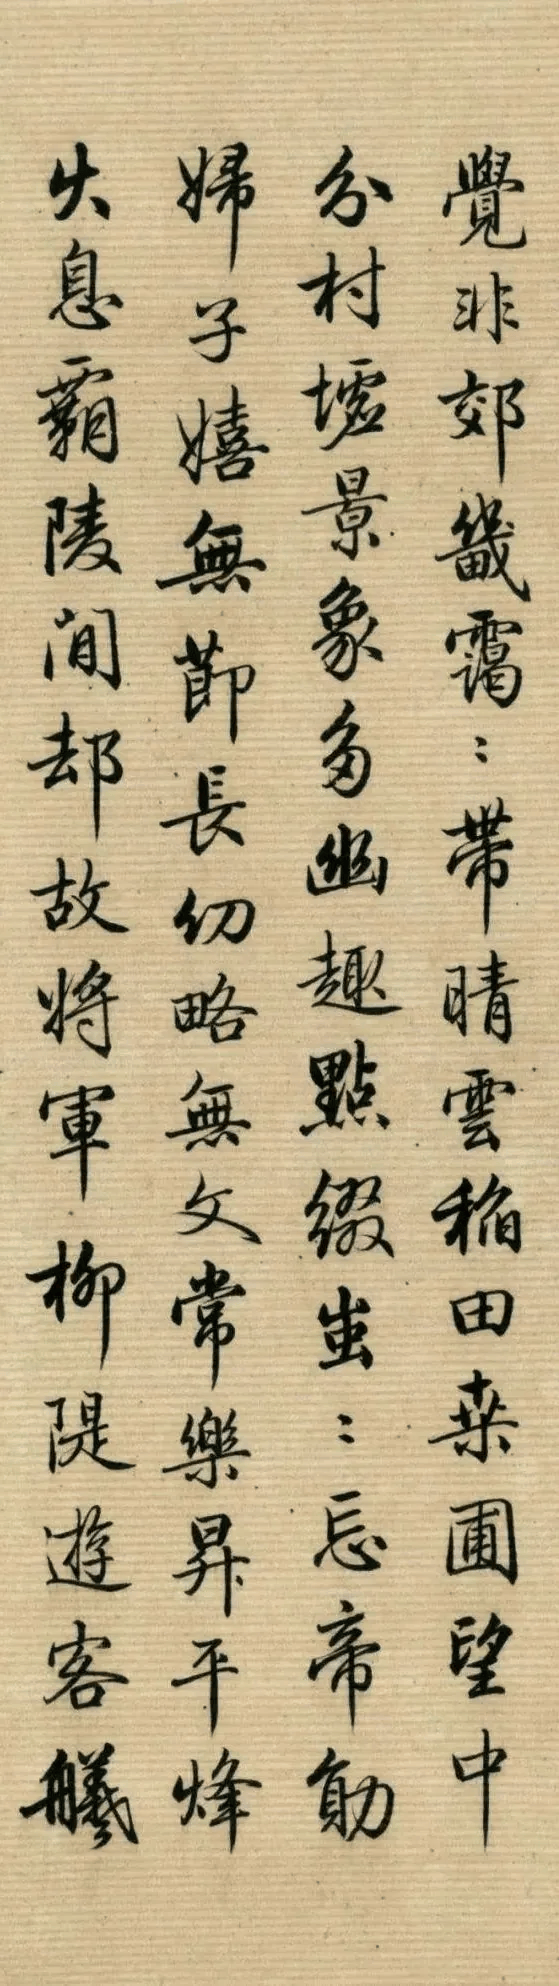 覺非郊畿靄〻帶晴雲稻田桒圃望中
分村墟景象多幽趣點綴蚩〻忘帝勛
婦子嬉無節長幼略無文常樂昇平烽
火息霸陵閒却故將軍 柳隄遊客艤